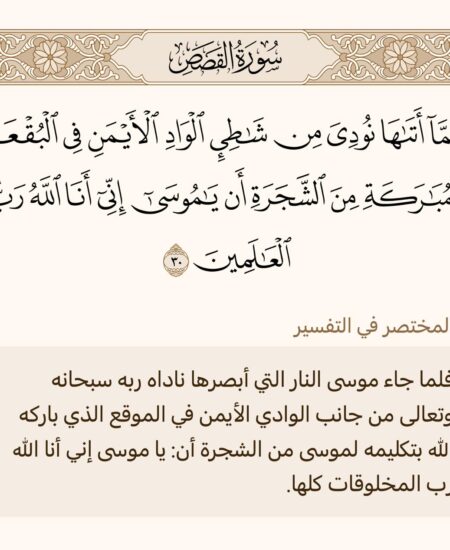 سُورَةُ القَصَصِ
مَّآ أَتَىٰهَا نُودِىَ مِن شَٰطِئِ ٱلْوَادِ ٱلْأَيْمَنِ فِى ٱلْبُقْعَ
مُبَٰرَكَةِ مِنَ ٱلشَّجَرَةِ أَن يَٰمُوسَىٰٓ إِنِّىٓ أَنَا ٱللَّهُ رَبُّ
ٱلْعَٰلَمِينَ ٣٠
لمختصر في التفسير
فلما جاء موسى النار التي أبصرها ناداه ربه سبحانه
وتعالى من جانب الوادي الأيمن في الموقع الذي باركه
لله بتكليمه لموسى من الشجرة أن: يا موسى إني أنا الله
رب المخلوقات كلها.